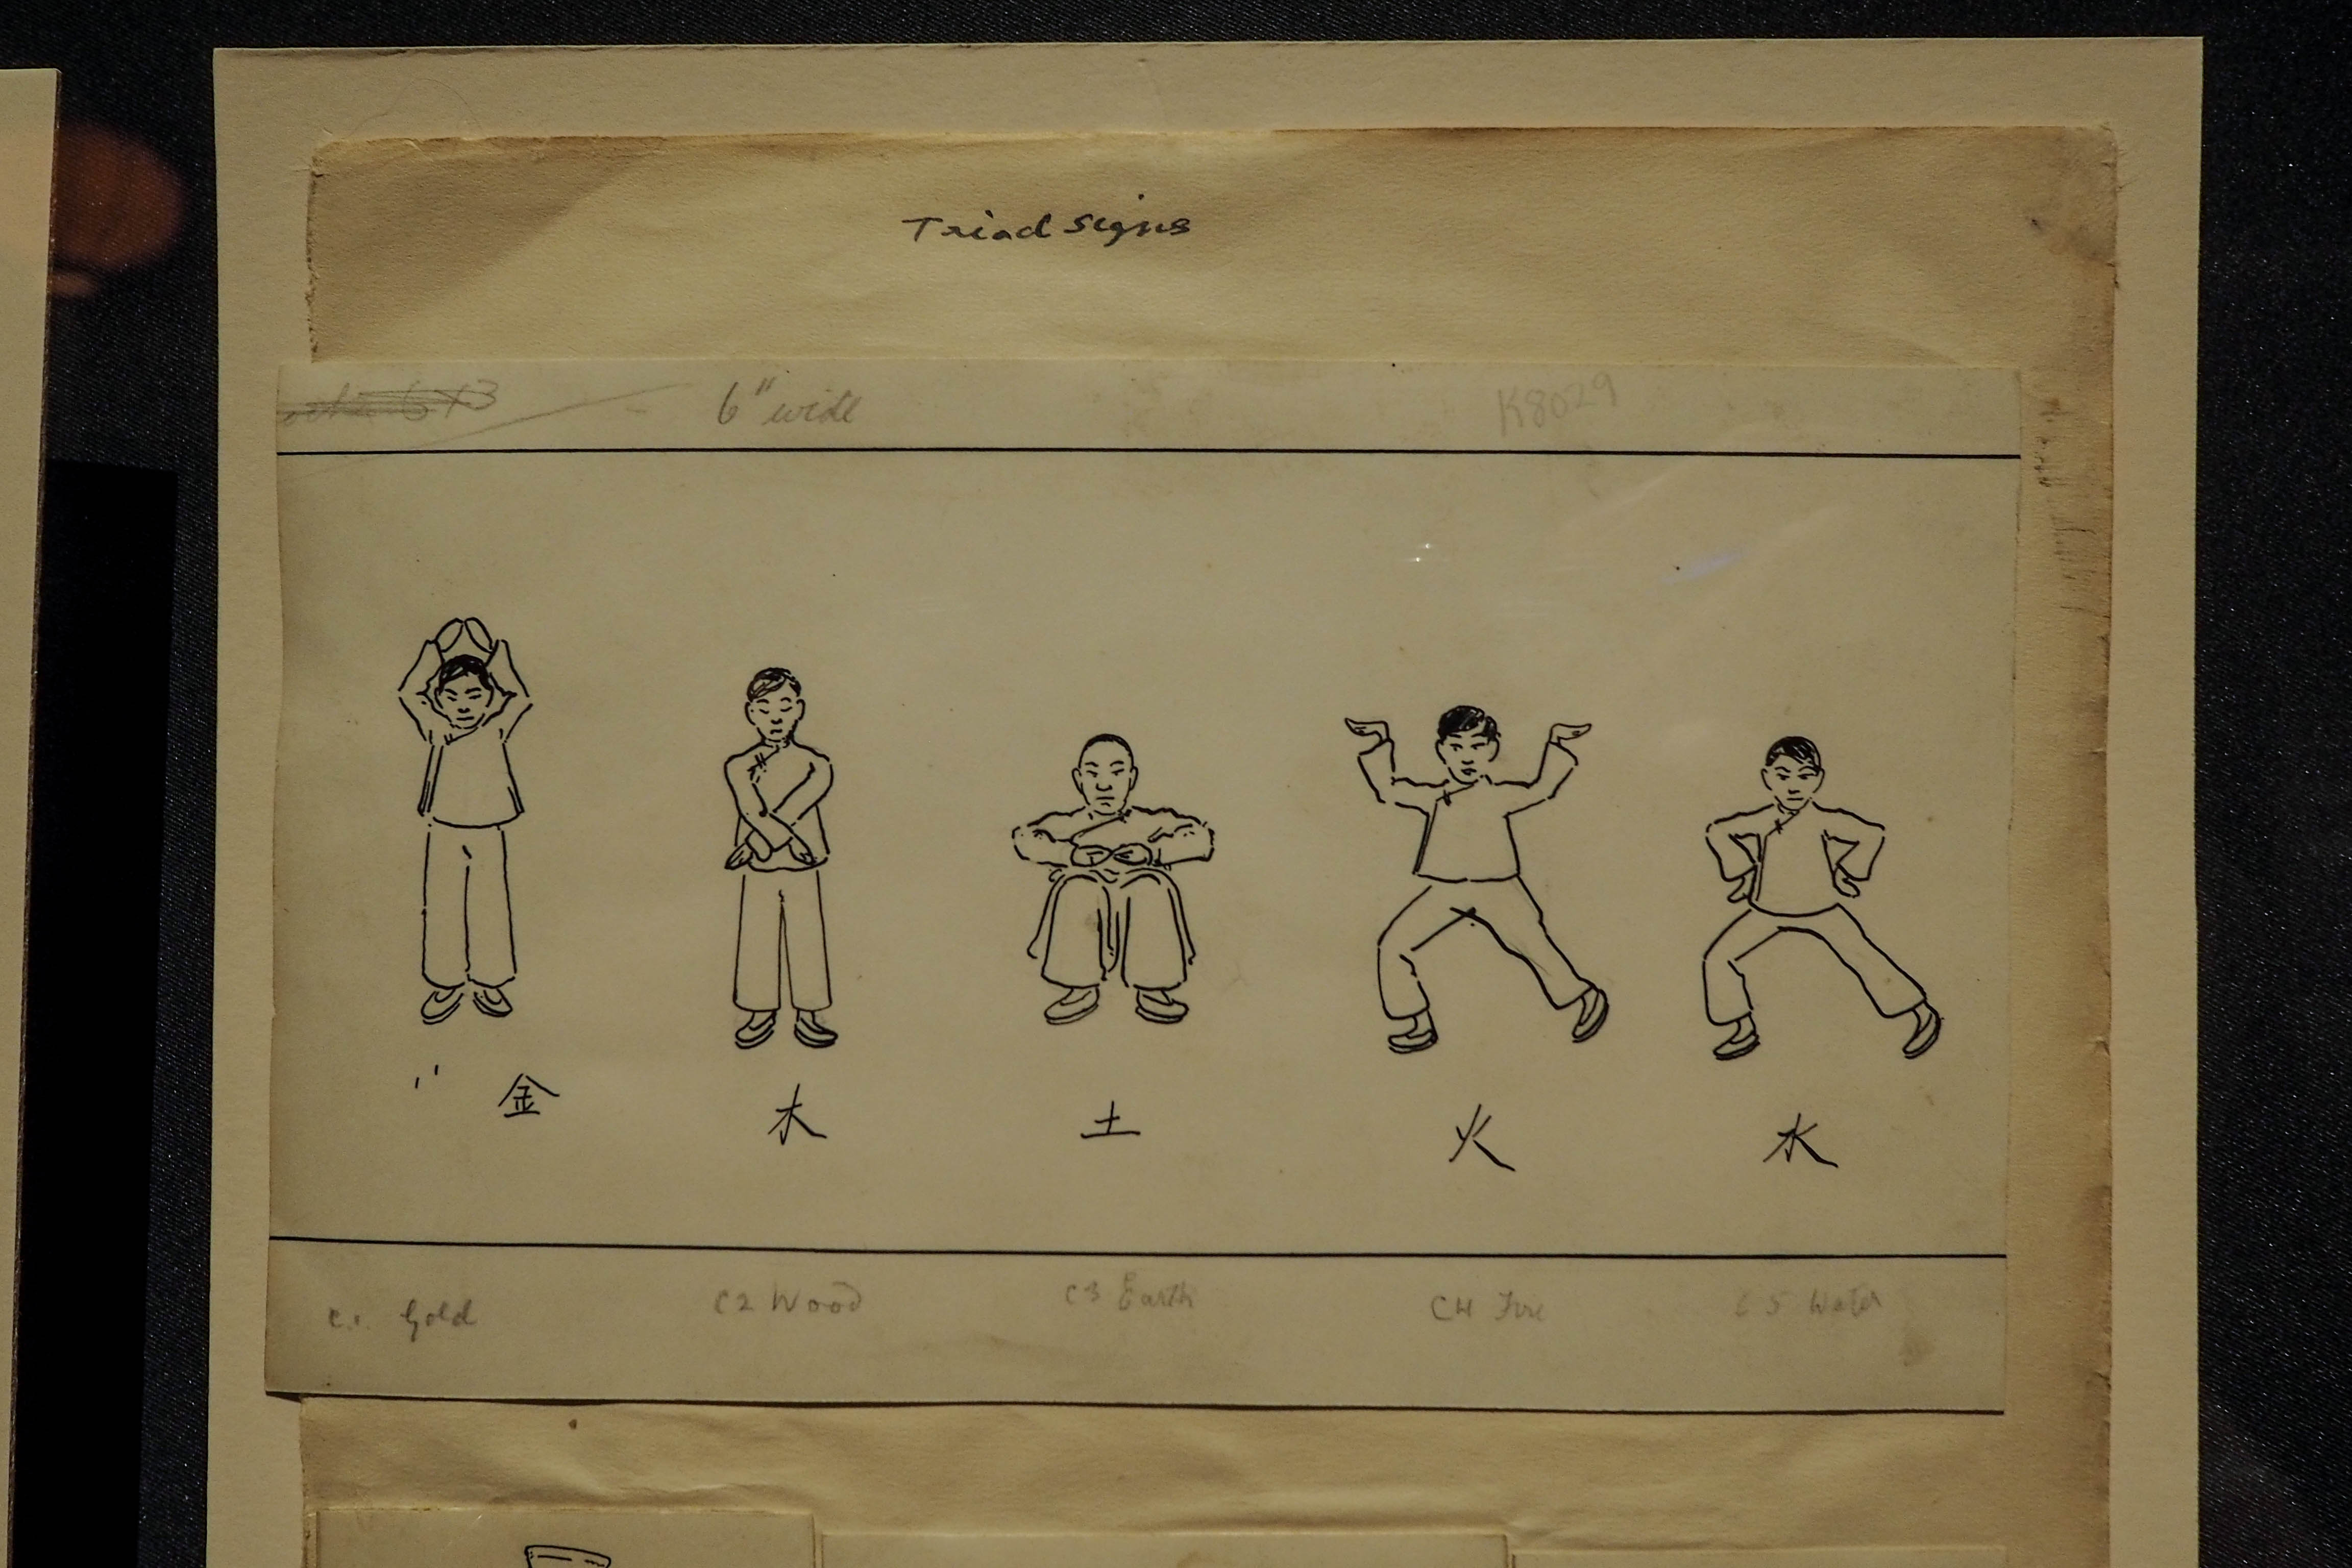 Triad signs
6" wide
K8029
金 木 土 火 水
C.1. Gold C2 Wood C3 Earth C4 Fire C5 Water